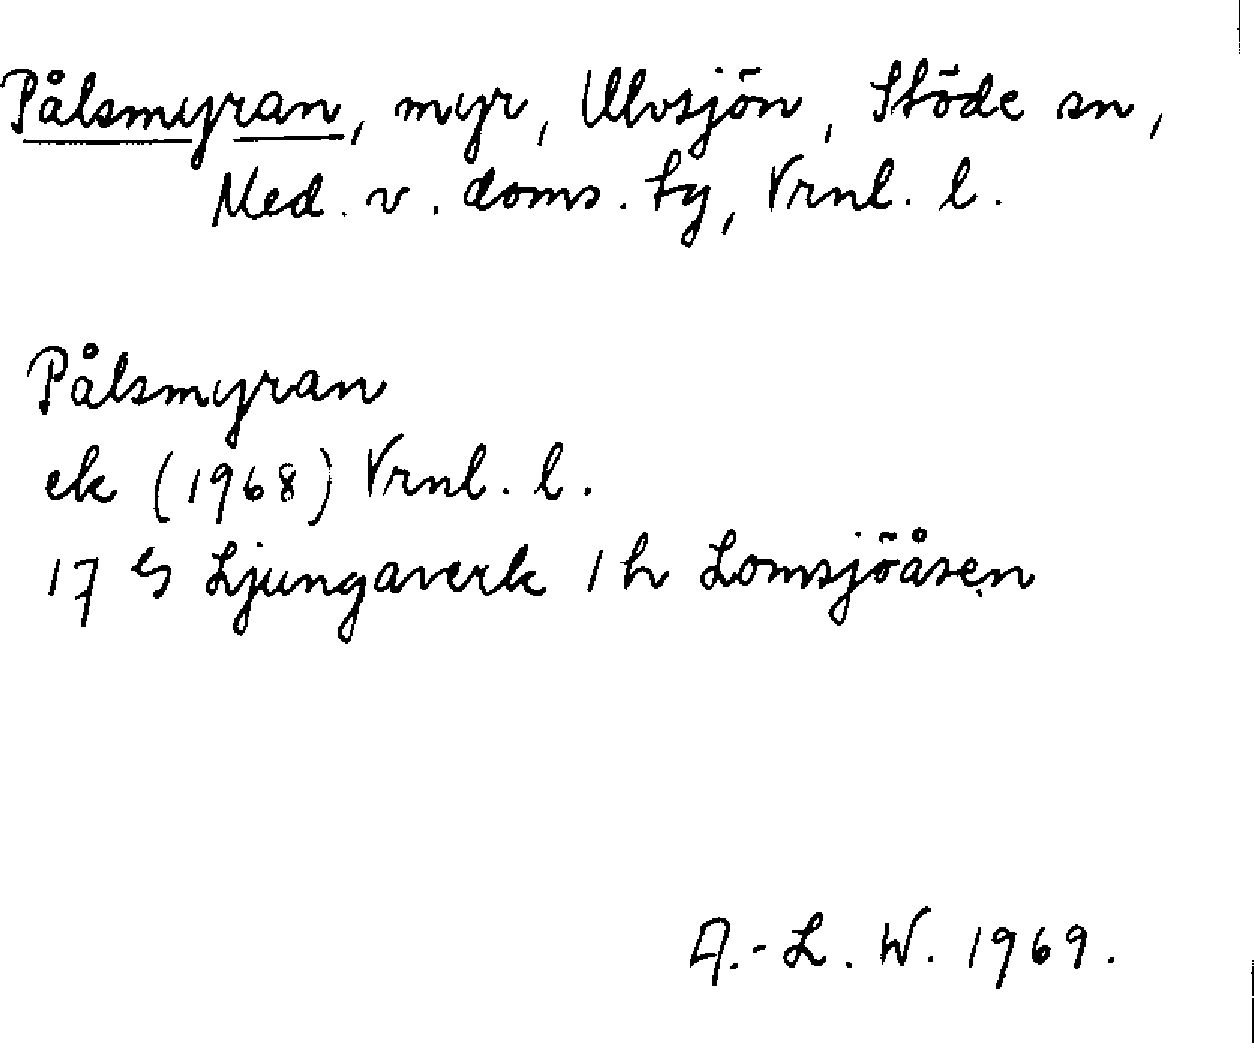 Pålsmyran, myr, Ulvsjön, Stöde sn,
Med. v. doms. tg, Vrnl. l.
Pålsmyran
ek (1968) Vrnl. l.
17 G Ljungaverk 1 h Lomsjöåsen
A.-L. W. 1969.